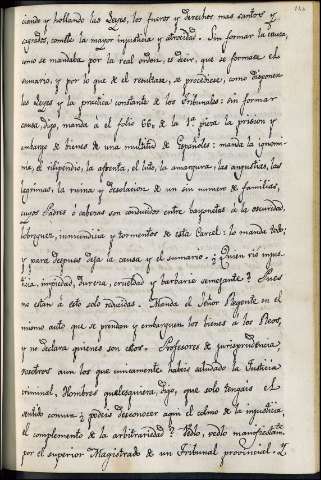 ciando y hollando las Leyes, los fueros y derechos mas santos y
sagrados, comete la mayor injusticia y atrocidad. Sin formar la causa,
como se mandaba por la real orden, es decir, que se formase el
sumario, y por lo que de el resultase, se procediese, como disponen
las Leyes y la practica constante de los Tribunales: sin formar
causa, digo, manda á el folio 66, de la 1ª pieza la prision y
embargo de bienes de una multitud de Españoles: manda la ignomi-
nia, el vilipendio, la afrenta, el luto, la amargura, las angustias, las
legrimas, la ruina y desolacion de un sin numero de familias,
cuyos Padres ó cabezas son conducidos entre bayonetas á la oscuridad,
lobreguez, inmundicia y tormentos de esta Carcel: lo manda todo;
y para despues deja la causa y el sumario. ¿Quien vio injus-
ticia, impiedad, dureza, crueldad y barbarie semejante? Pues
no estan á esto solo reducidas. Manda el Señor Regente en el
mismo auto que se prendan y embarguen los bienes á los Reos,
y no declara quienes son estos. Profesores de jurisprudencia,
vosotros aun los que unicamente habeis saludado la Justicia
criminal, Hombres qualesquiera, digo, que solo tengais el
sentido comun ¿podeis desconocer aqui el colmo de la injusticia,
el complemento de la arbitrariedad? Vedlo, vedlo manifiestamte
por el superior Magistrado de un Tribunal provincial. Y